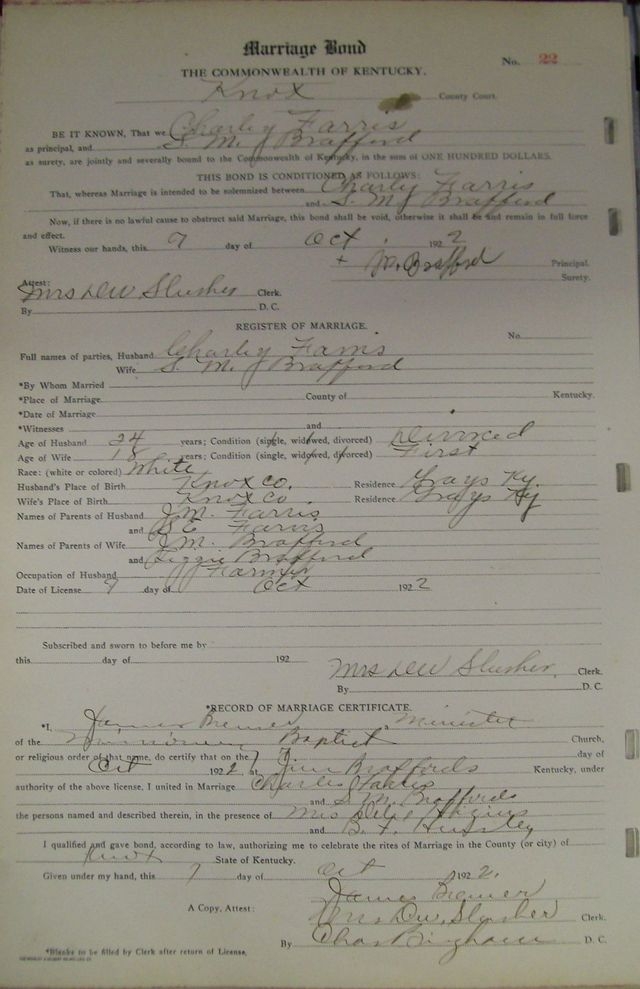 Marriage Bond
No. 22
THE COMMONWEALTH OF KENTUCKY.
Knox County Court.
BE IT KNOWN, That we Charley Farris
as principal, and S. M. Brafford
as surety, are jointly and severally bound to the Commonwealth of Kentucky, in the sum of ONE HUNDRED DOLLARS.
THIS BOND IS CONDITIONED AS FOLLOWS:
That, whereas Marriage is intended to be solemnized between Charly Farris
and S. M. Brafford
Now, if there is no lawful cause to obstruct said Marriage, this bond shall be void, otherwise it shall be and remain in full force
and effect.
Witness our hands, this 7 day of Oct 1922
+ Principal.
M. Brafford Surety.
Attest:
Mrs DW Slusher Clerk.
By D. C.
REGISTER OF MARRIAGE.
No.
Full names of parties, Husband Charley Farris
Wife S. M. Brafford
*By Whom Married
*Place of Marriage County of Kentucky.
*Date of Marriage
*Witnesses and
Age of Husband 24 years; Condition (single, widowed, divorced) Divorced
Age of Wife 18 years; Condition (single, widowed, divorced) First
Race: (white or colored) White
Husband's Place of Birth Knox Co. Residence Grays Ky.
Wife's Place of Birth Knox Co Residence Grays Ky
Names of Parents of Husband J. M. Farris
and Farris
Names of Parents of Wife J. M. Brafford
and Lizzie Brafford
Occupation of Husband Farmer
Date of License 7 day of Oct 1922
Subscribed and sworn to before me by
this day of 192
Mrs DW Slusher. Clerk.
By D. C.
*RECORD OF MARRIAGE CERTIFICATE.
*I, James Bremer Minister
of the Missionary Baptist Church,
or religious order of that name, do certify that on the 7 day of
Oct 1922 at Jim Braffords Kentucky, under
authority of the above license, I united in Marriage Charles Farris
and S. M. Braffords
the persons named and described therein, in the presence of Mrs
and B. F.
I qualified and gave bond, according to law, authorizing me to celebrate the rites of Marriage in the County (or city) of
Knox State of Kentucky.
Given under my hand, this 7 day of Oct 1922.
James Bremer
A Copy, Attest: Mrs DW. Slusher Clerk.
By Chas Bingham D. C.
*Blanks to be filled by Clerk after return of License.